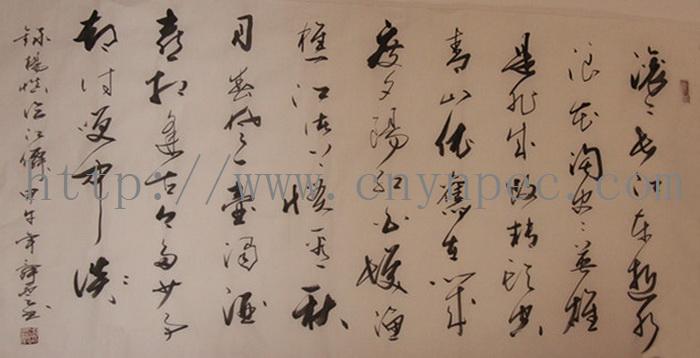 滚滚長江东逝水
浪花淘尽英雄
是非成败转头空
青山依舊在几
度夕陽红白髮渔
樵江渚上惯看秋
月春风一壶浊酒
喜相逢古今多少事
都付笑中谈
録楊慎临江仙 甲午年
http://www.cnynpec.com